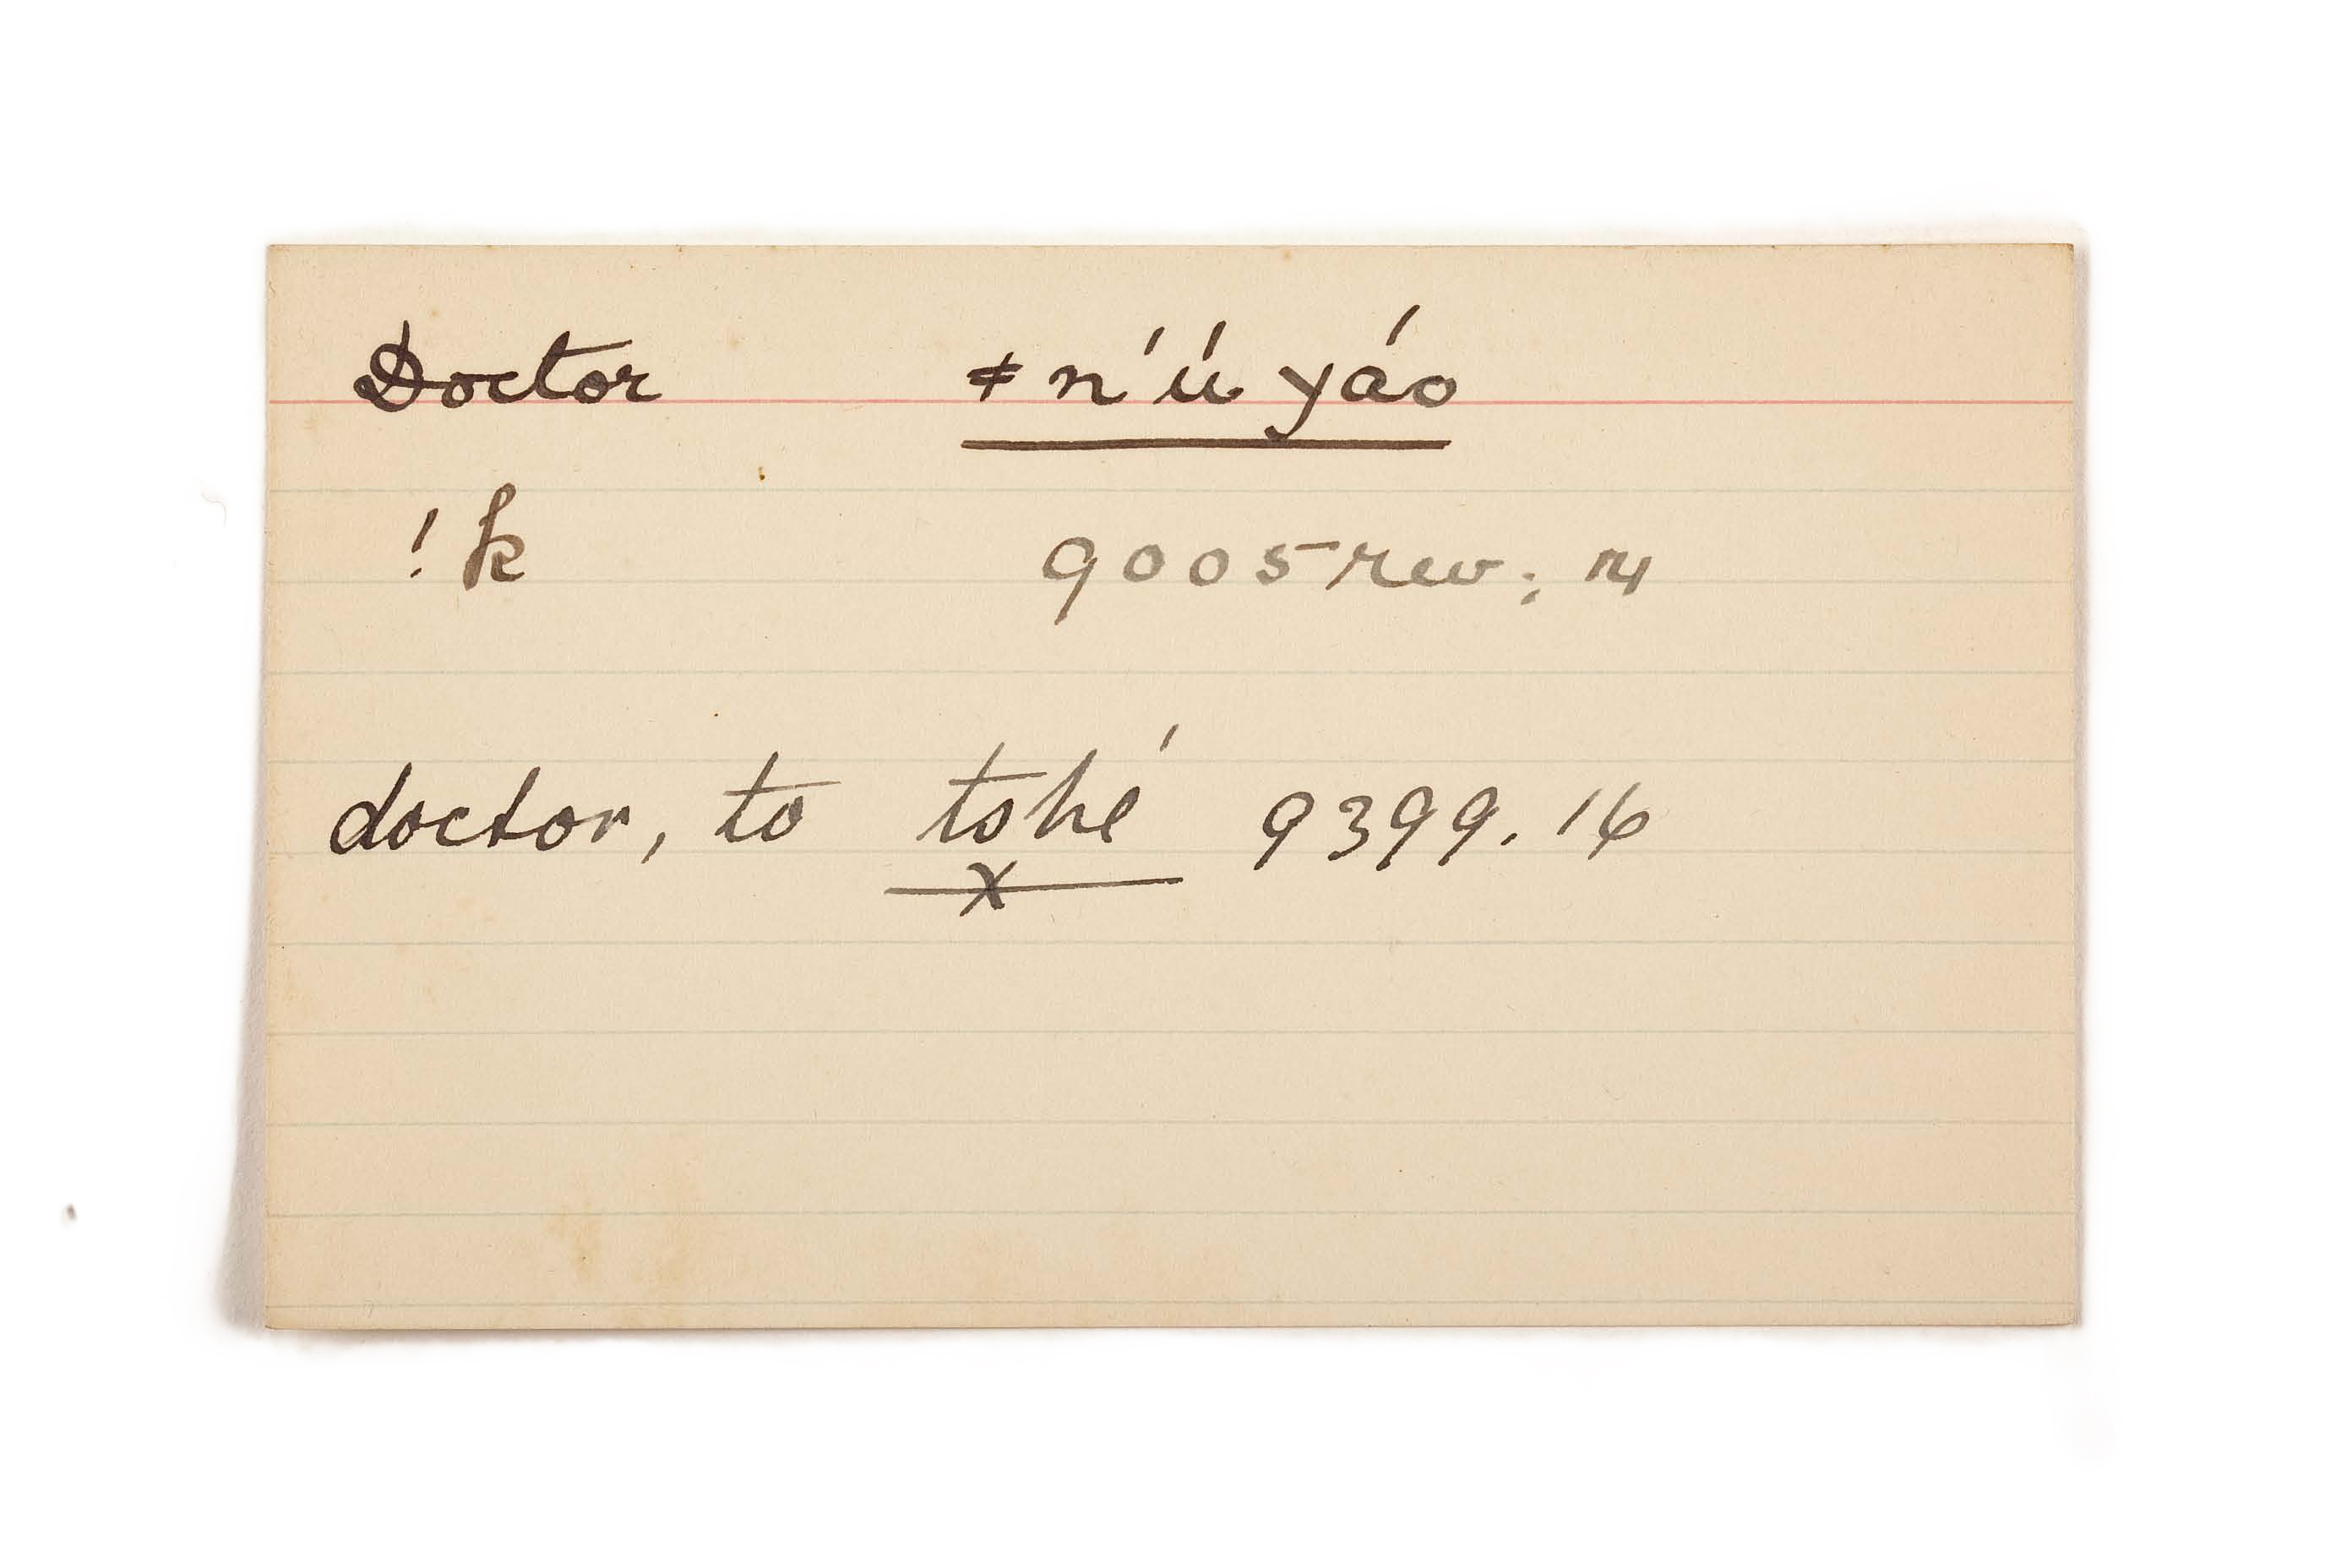 Doctor ǂn'ú yáo
!k 9005 rev: 14
doctor, to tshé 9399. 16
x